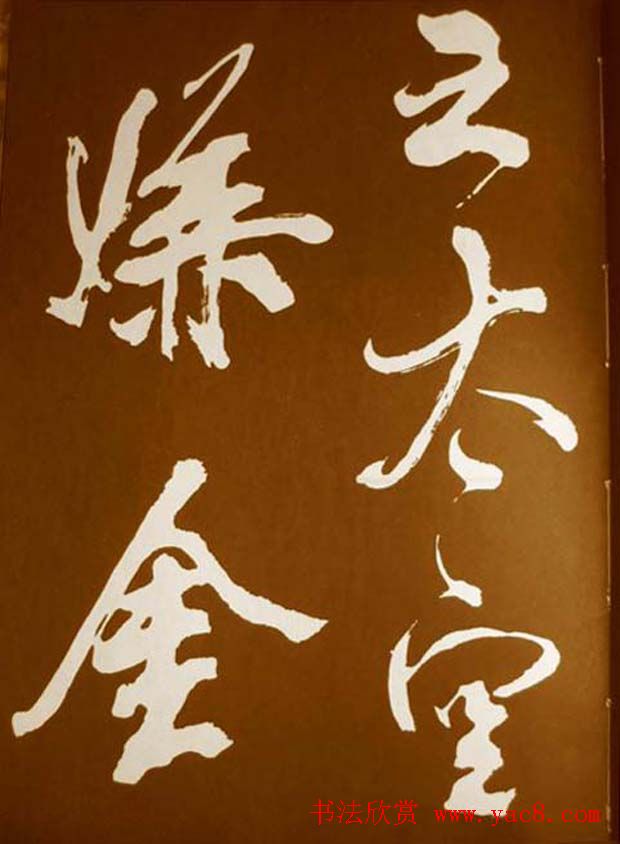 之太空
嫌金
书法欣赏 www.yac8.com